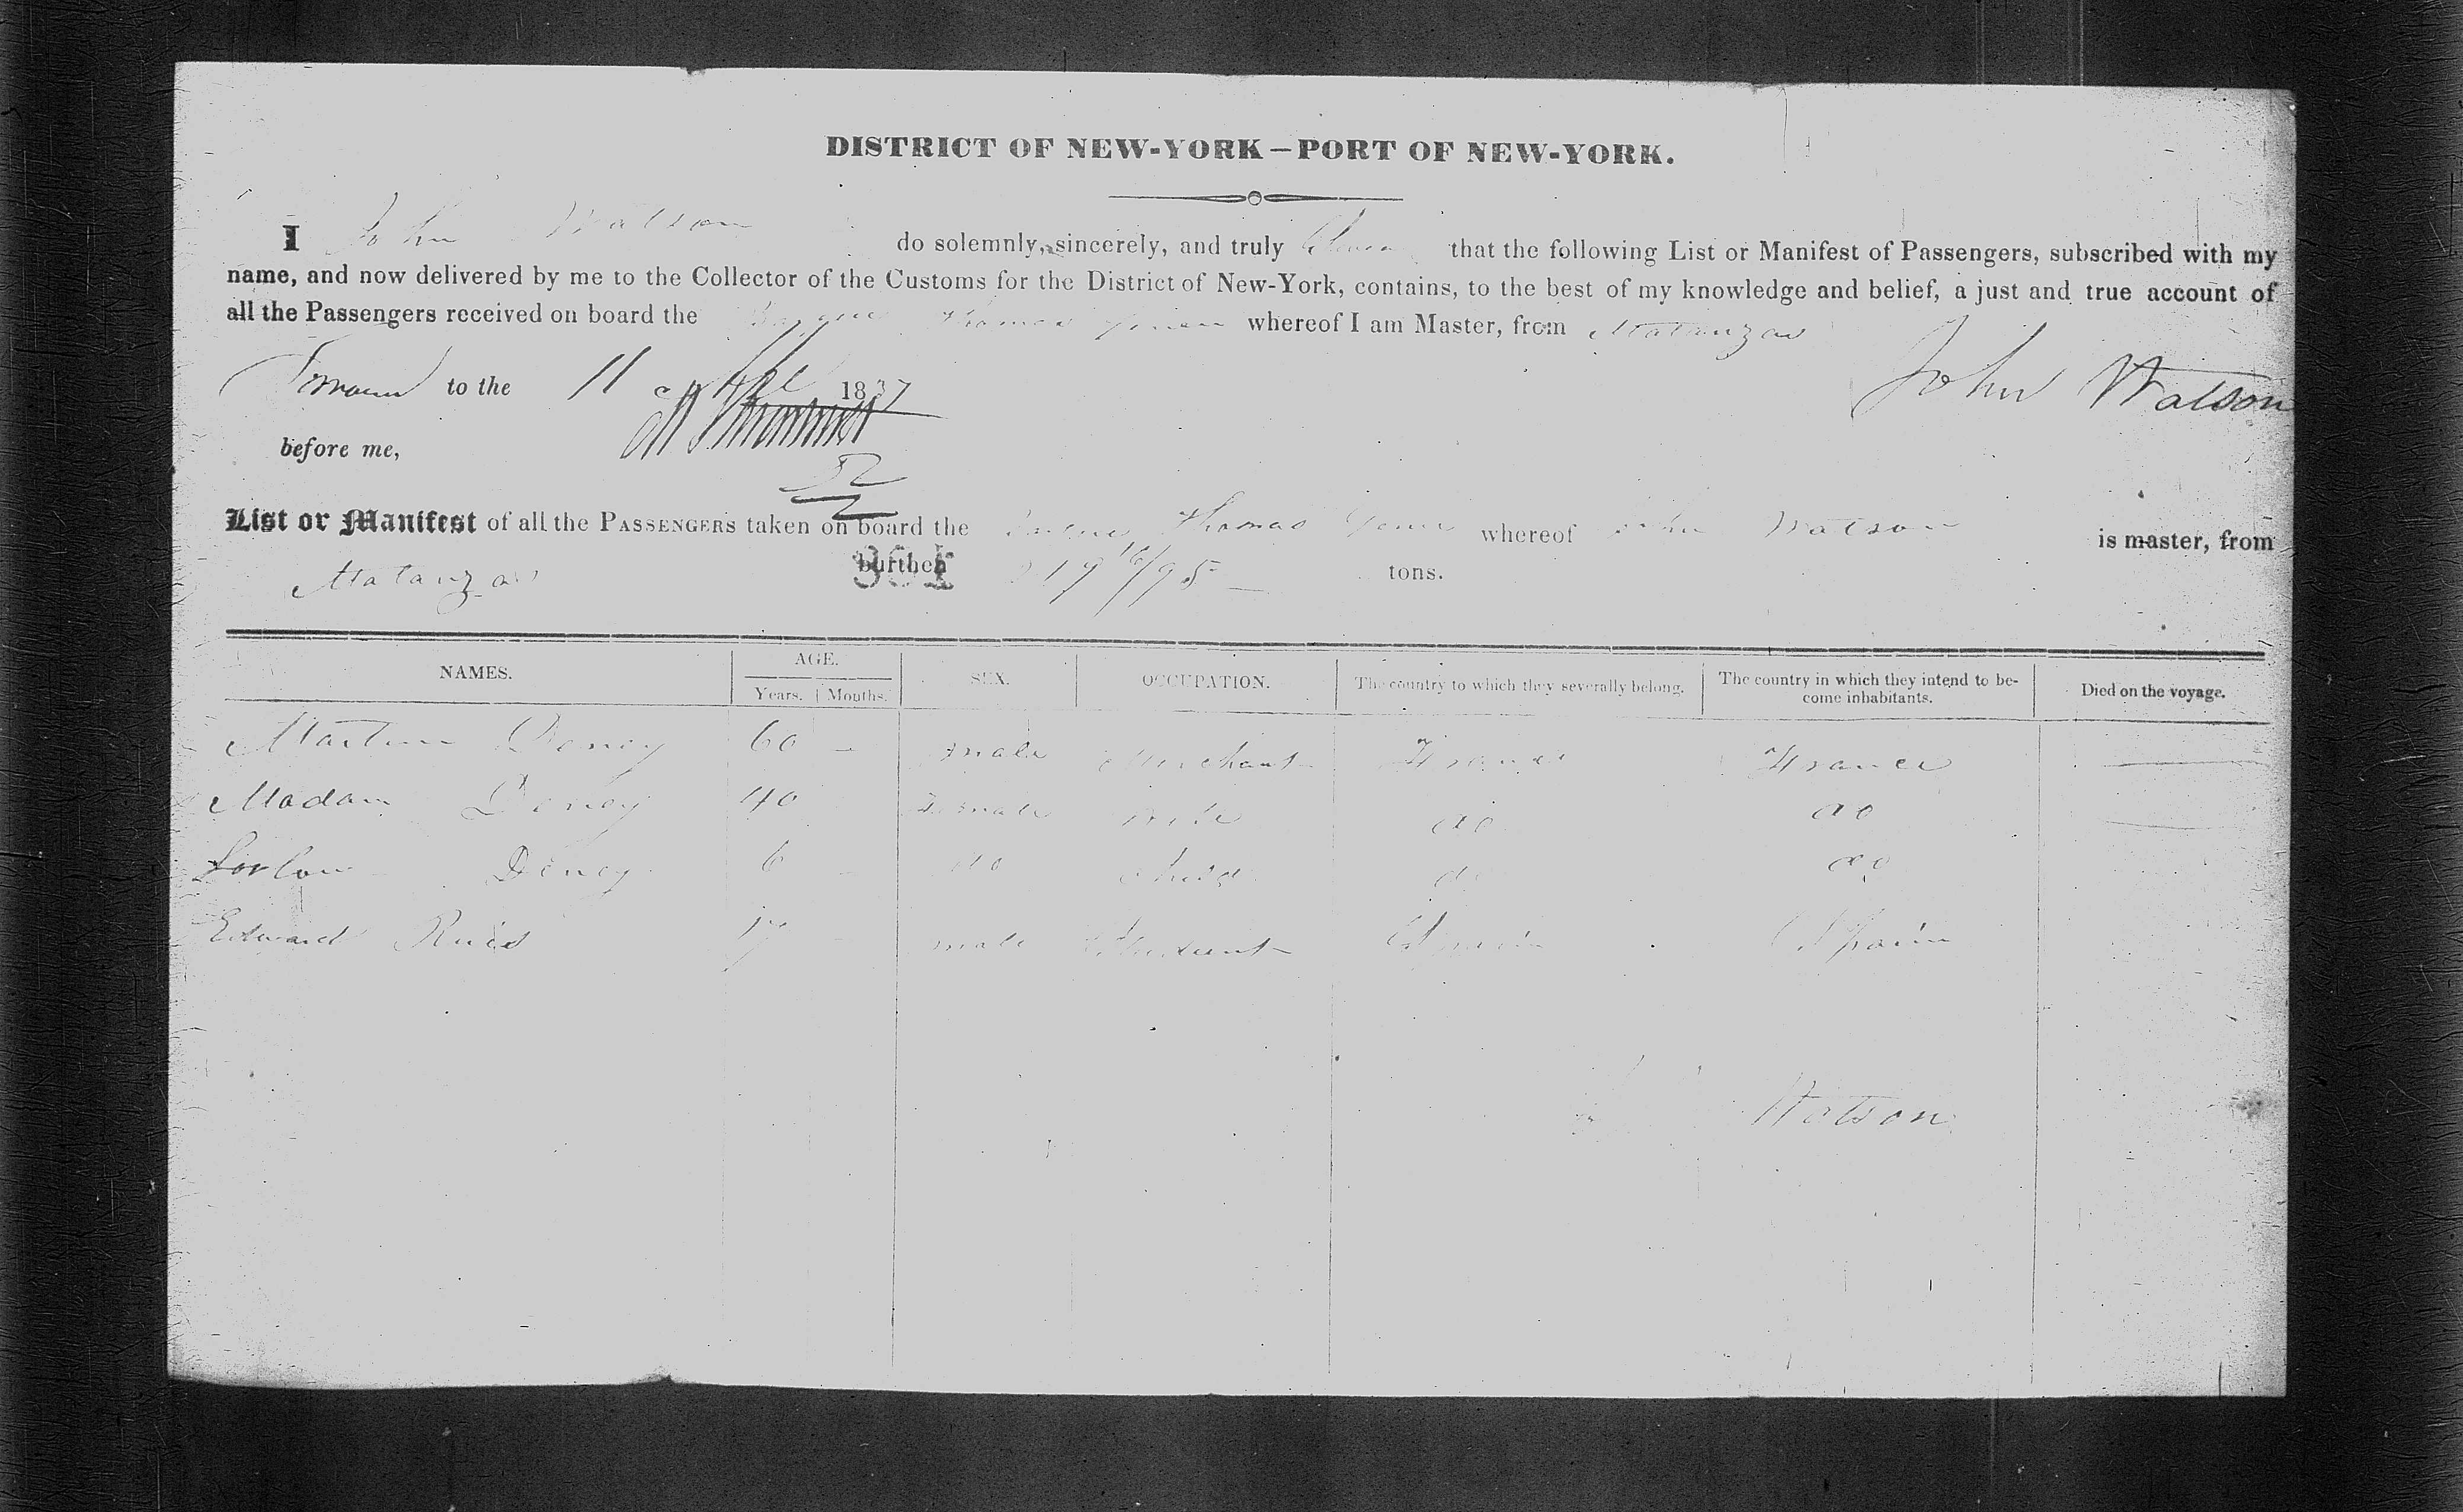 DISTRICT OF NEW-YORK—PORT OF NEW-YORK.
I John Watson do solemnly, sincerely, and truly that the following List or Manifest of Passengers, subscribed with my
name, and now delivered by me to the Collector of the Customs for the District of New-York, contains, to the best of my knowledge and belief, a just and true account of
all the Passengers received on board the Barque Thomas whereof I am Master, from Matanzas
to the 11 1837 John Watson
before me,
52
List or Manifest of all the PASSENGERS taken on board the Thomas whereof John Watson is master, from
Matanzas burthen 16/95 tons.
NAMES. AGE. SEX. OCCUPATION. The country to which they severally belong. The country in which they intend to be-
come inhabitants. Died on the voyage.
Years. Months.
Deney 60 — male Merchant France France
Madam Deney 40 Female Wife do do
Deney 6 do Child do do
Edward 17 male Student Spain Spain
Watson